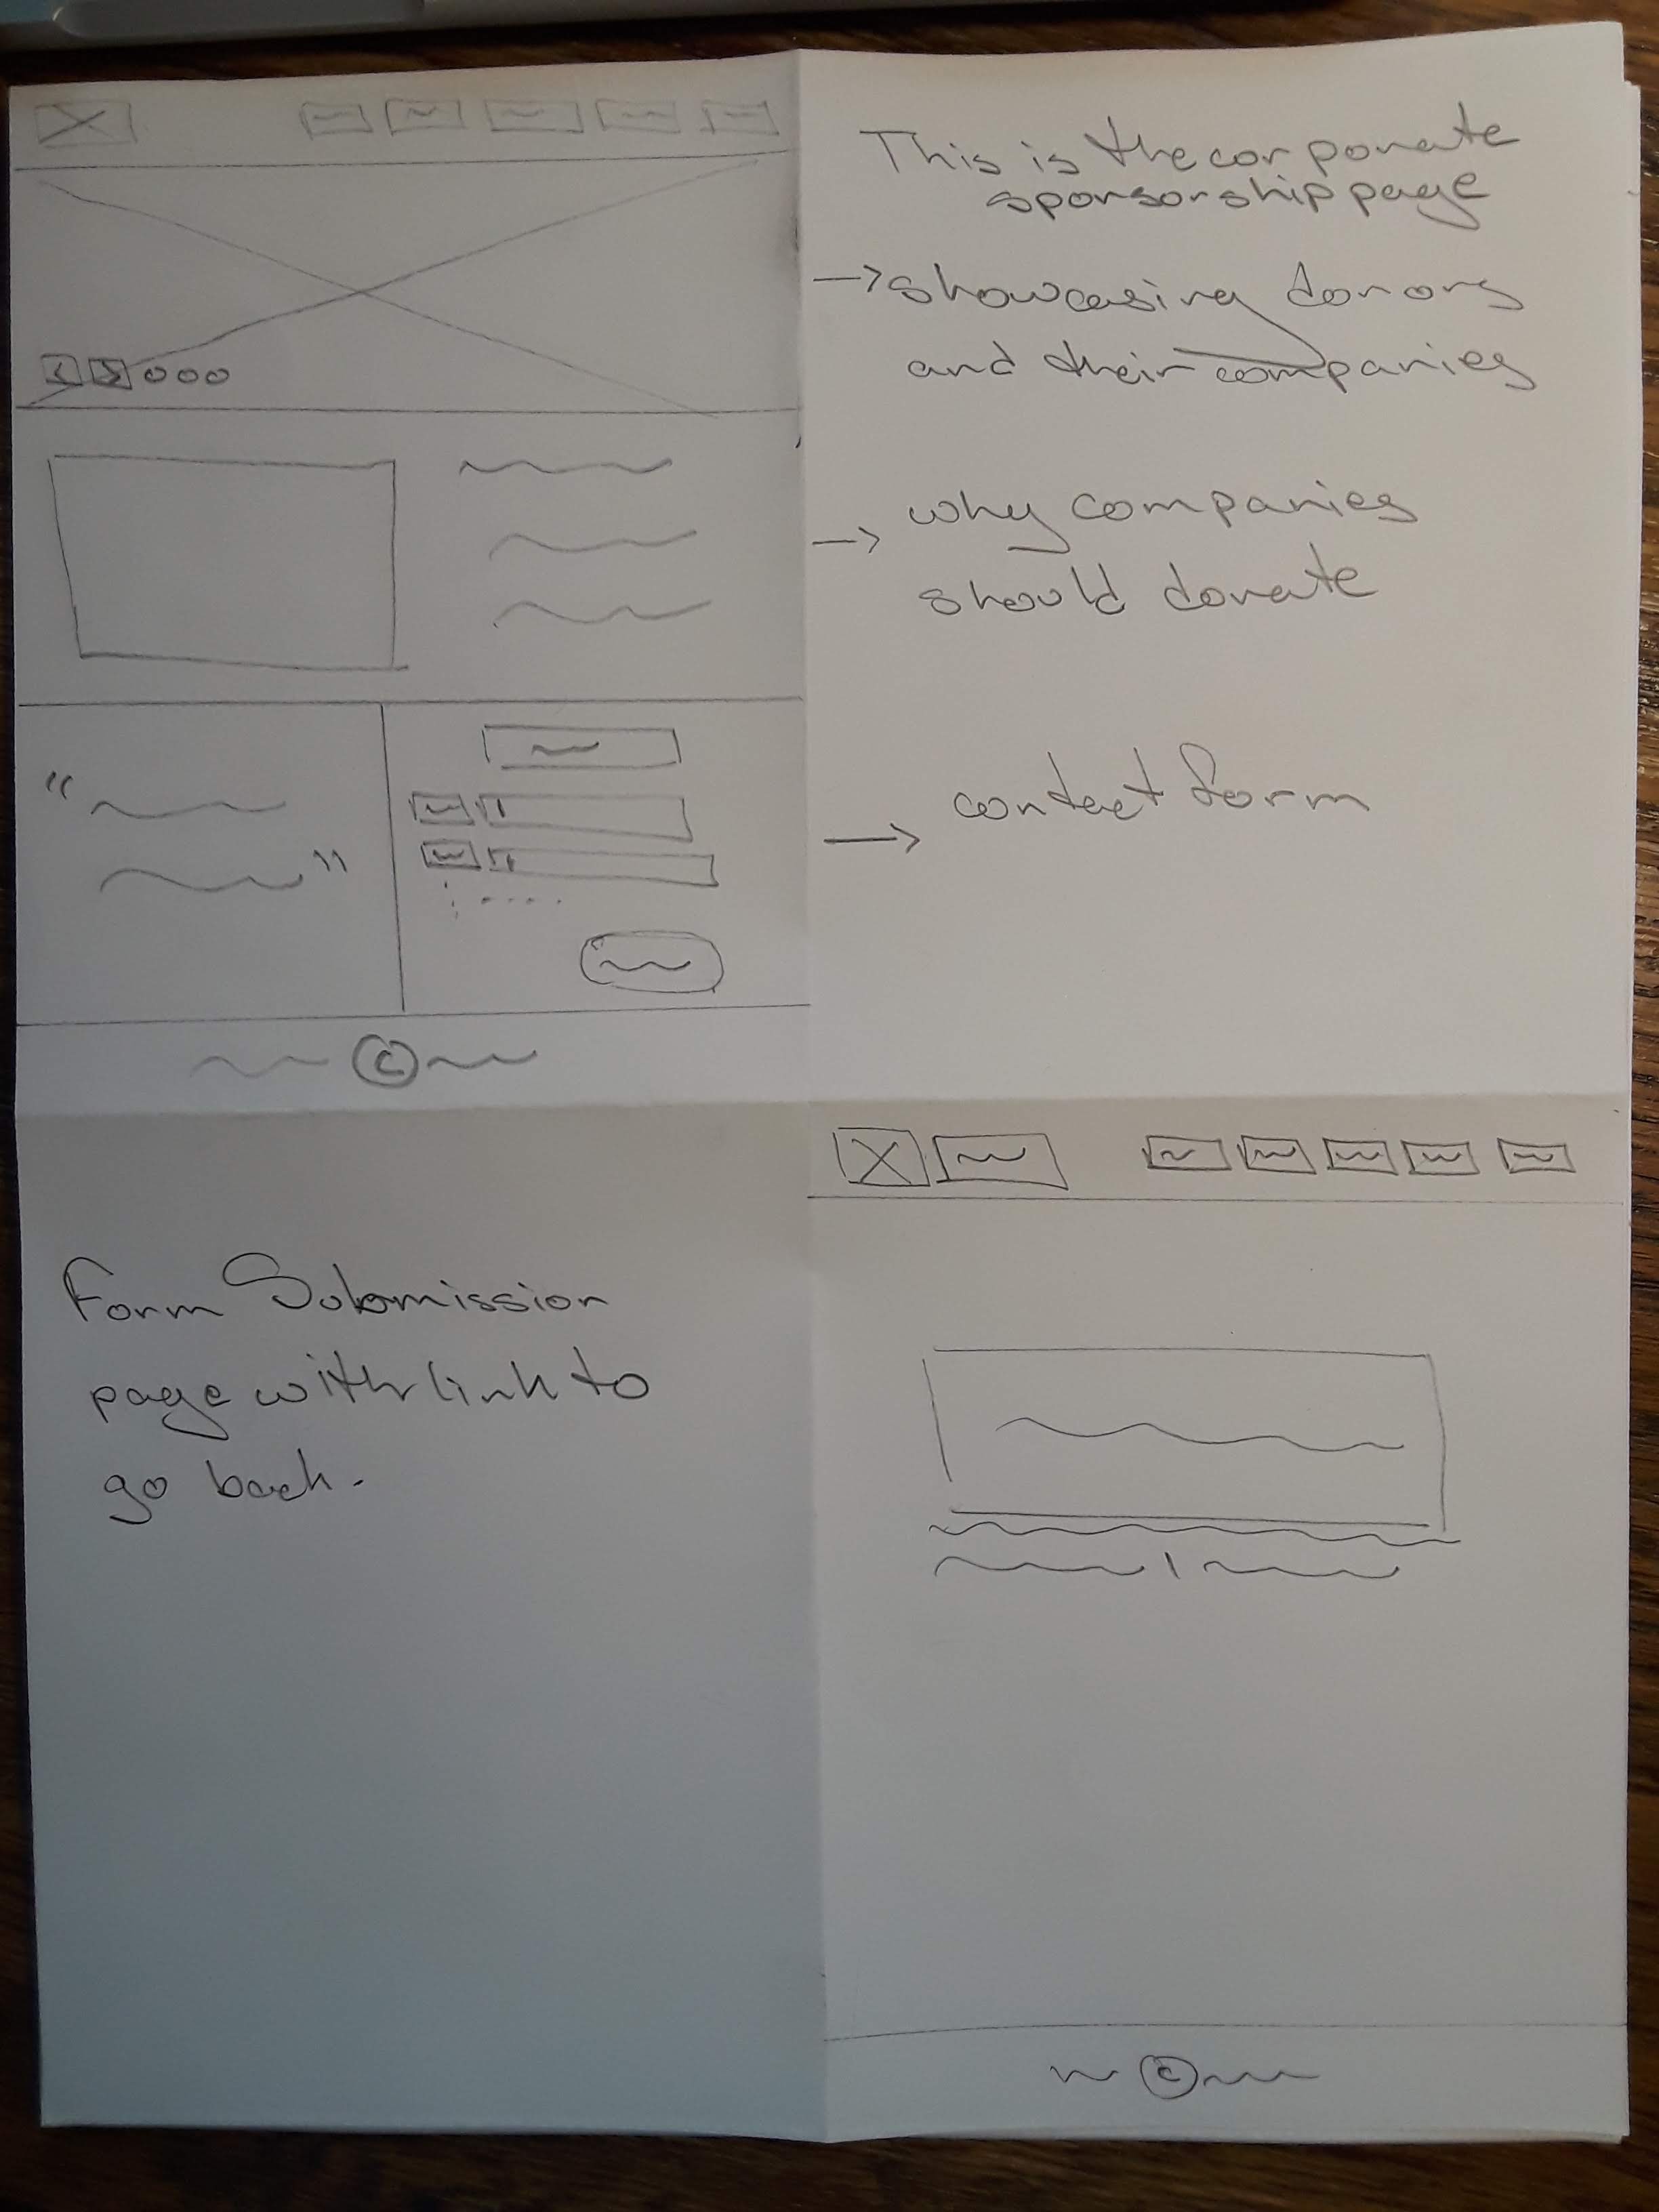 This is the corporate
sponsorship page
→ showcasing donors
and their companies
→ why companies
should donate
→ contact form
"
"
©
Form Submission
page with link to
go back.
©